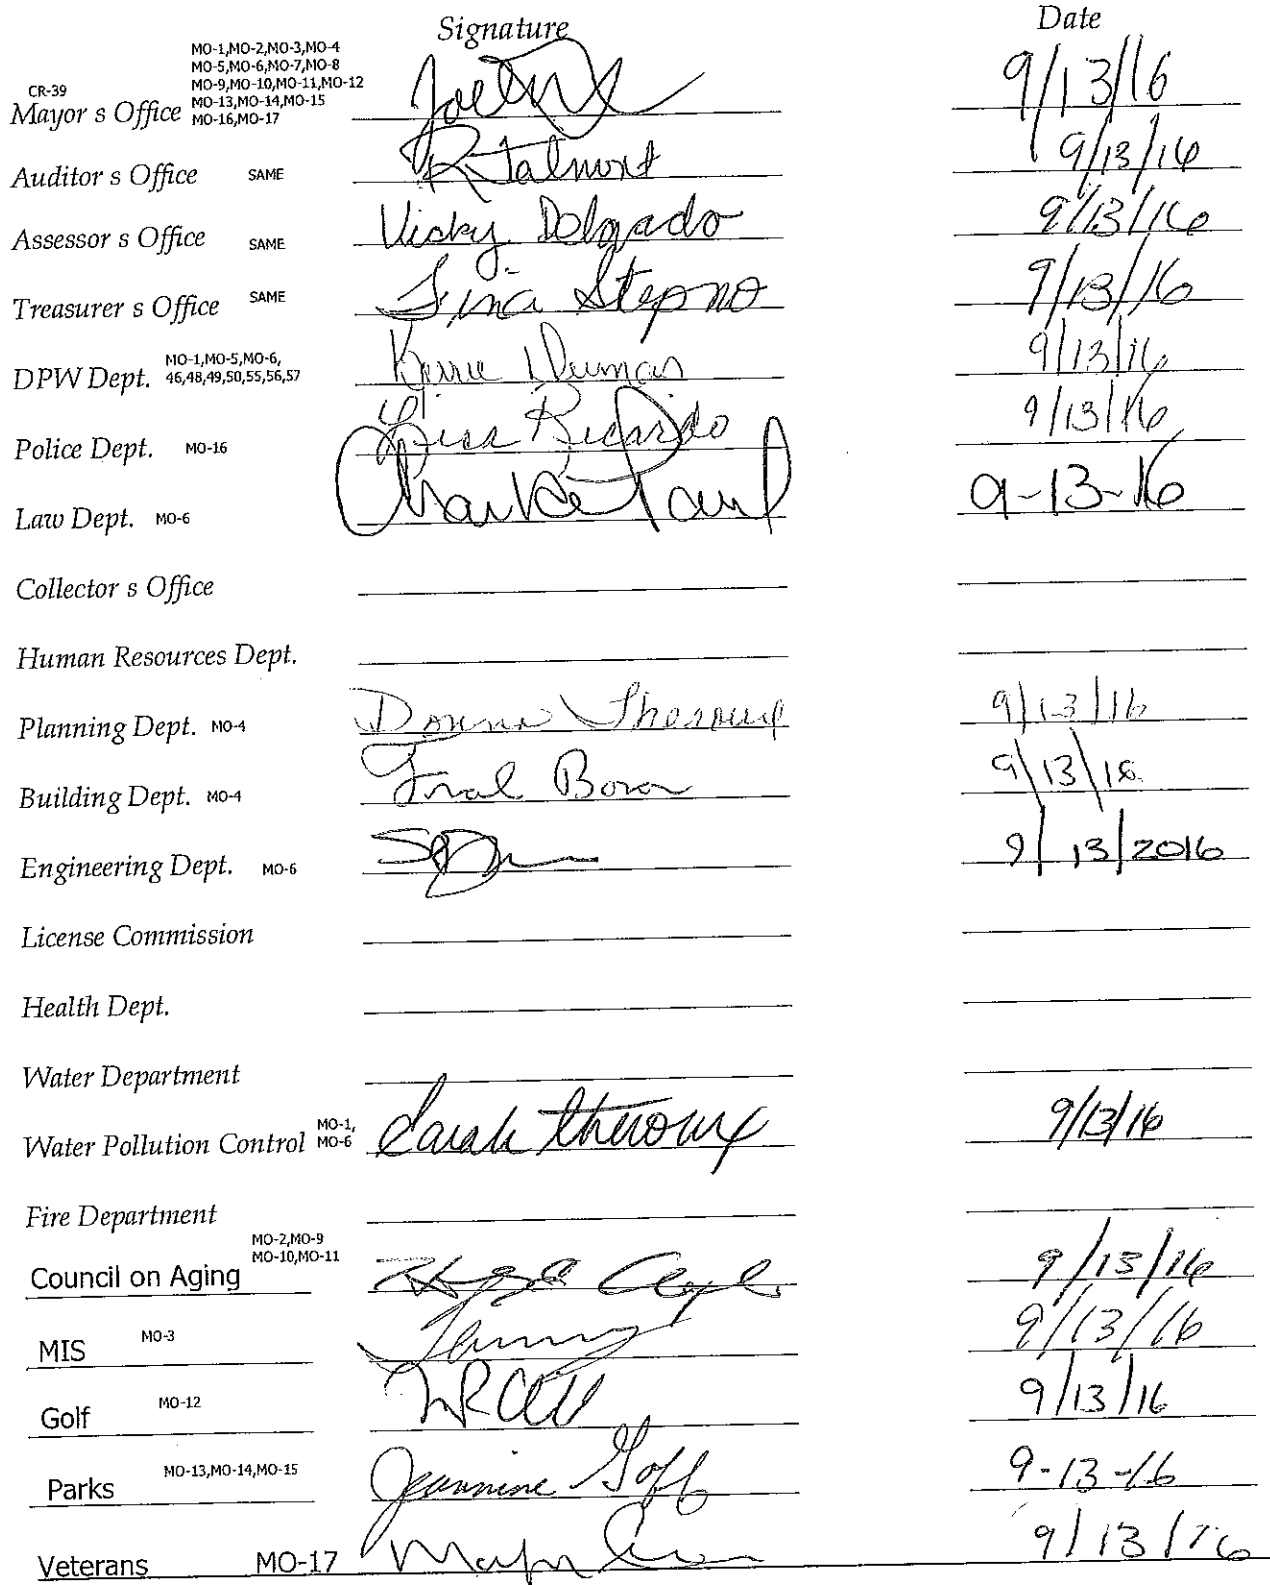 Signature Date
MO-1,MO-2,MO-3,MO-4
MO-5,MO-6,MO-7,MO-8
CR-39 MO-9,MO-10,MO-11,MO-12
Mayor s Office MO-13,MO-14,MO-15 9/13/16
MO-16,MO-17
Auditor s Office SAME R Talmont 9/13/16
Assessor s Office SAME Vicky Delgado 9/13/16
Treasurer s Office SAME Tina Stepno 9/13/16
MO-1,MO-5,MO-6,
DPW Dept. 46,48,49,50,55,56,57 9/13/16
Police Dept. MO-16 Lisa Ricardo 9/13/16
Law Dept. MO-6 Paul 9-13-16
Collector s Office
Human Resources Dept.
Planning Dept. MO-4 Donna 9/13/16
Building Dept. MO-4 9/13/16
Engineering Dept. MO-6 9/13/2016
License Commission
Health Dept.
Water Department
Water Pollution Control MO-1, Sarah Theroux 9/13/16
MO-6
Fire Department
MO-2,MO-9
MO-10,MO-11
Council on Aging 9/13/16
MIS MO-3 9/13/16
Golf MO-12 9/13/16
Parks MO-13,MO-14,MO-15 Jeannine Goff 9-13-16
Veterans MO-17 9/13/16